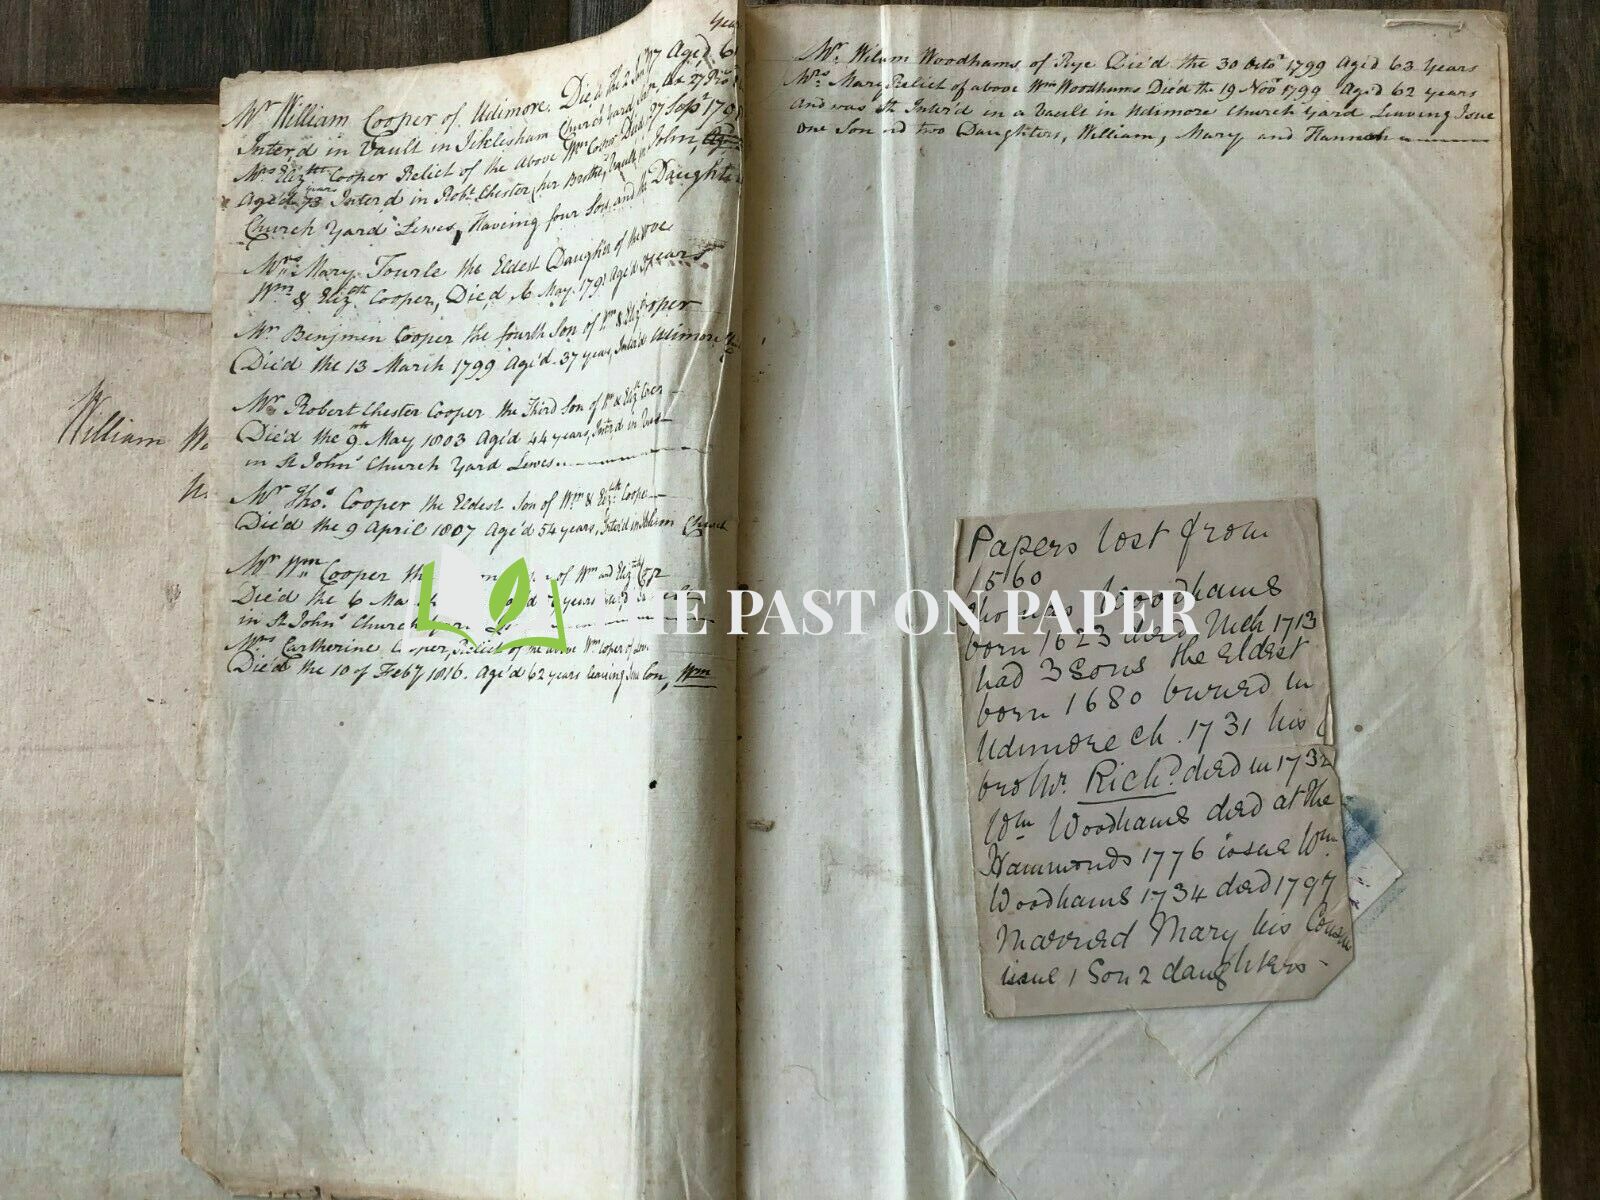 Year
Mr William Cooper of Udimore. Died the 2 Aged 6
Inter'd in Vault in Icklesham Church Yard,
Mrs Elizth Cooper Relict of the above Wm Cooper Died 27 Sepr 170
Age'd 73 years Inter'd in Robt Chester (her Brother) Vault in John,
Church Yard Lewes, Haveing four Sons and Daughte
Mrs Mary Tourle the Eldest Daughter of the above
Wm & Elizth Cooper, Died May. 179 Age'd years
Mr Benjmen Cooper the fourth Son of Wm & Eliz Cooper
Die'd the 13 March 1799 Age'd 37 years, Inter'd Udimore
Mr Robert Chester Cooper the Third Son of Wm & Eliz Cooper
Die'd the 9th May 1803 Age'd 44 years, Inter'd in Vault
in St John's Church Yard Lewes
Mr Thos Cooper the Eldest Son of Wm & Elizth Cooper
Die'd the 9 April 1807 Age'd 54 years, Inter'd in Church
Mr Wm Cooper the of Wm and Elizth Coop
Die'd the 6 March years
in St John's Church yard
Mrs Catherine Cooper, Relict of the above Wm Cooper of Lewes
Die'd the 10 of Feby 1816. Age'd 62 years leaving Issue Son, Wm
William Wo
Mr Wilum Woodhams of Rye Die'd the 30 Octor 1799 Aged 63 Years
Mrs Mary Relict of above Wm Woodhams Die'd the 19 Novr 1799 Age'd 62 years
and was Inter'd in a Vault in Udimore Church Yard Leaving Issue
one Son and two Daughters, William, Mary and Hannah
Papers lost from
1560
Thomas Woodhams
born 1623 died Mch 1713
had 3 sons the Eldest
born 1680 buried in
Udimore Ch. 1731 his
brothr. Richd. died in 1732
Wm Woodhams died at the
Hammonds 1776 issue Wm
Woodhams 1734 died 1797
Married Mary his Cousin
issue 1 Son 2 daughters -
THE PAST ON PAPER